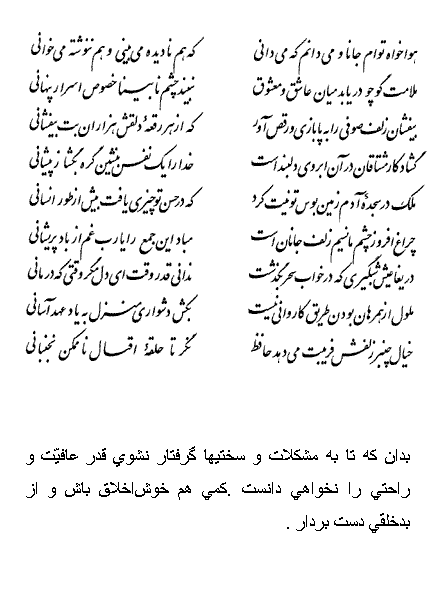 هواخواه توام جانا و می دانم که می دانی که هم نادیده می بینی و هم ننوشته می خوانی
ملامت گو چو دریابد میان عاشق و معشوق نبیند چشم نابینا خصوص اسرار پنهانی
بیفشان زلف و صوفی را به پابازی و رقص آور که از هر رقعهٔ دلقش هزاران بت بیفشانی
گشاد کار مشتاقان در آن ابروی دلبند است خدا را یک نفس بنشین گره بگشا ز پیشانی
ملک در سجدهٔ آدم زمین بوس تو نیت کرد که در حسن تو چیزی یافت بیش از طور انسانی
چراغ افروز چشم ما نسیم زلف جانان است مباد این جمع را یارب غم از باد پریشانی
دریغا عیش شبگیری که در خواب سحر بگذشت ندانی قدر وقت ای دل مگر وقتی که درمانی
ملول از همرهان بودن طریق کاروانی نیست بکش دشواری منزل به یاد عهد آسانی
خیال چنبر زلفش فریبت می دهد حافظ نگر تا حلقهٔ اقبال ناممکن نجنبانی
بدان که تا به مشکلات و سختيها گرفتار نشوي قدر عافيّت و
راحتي را نخواهي دانست .کمي هم خوش‌اخلاق باش و از
بدخلقي دست بردار .